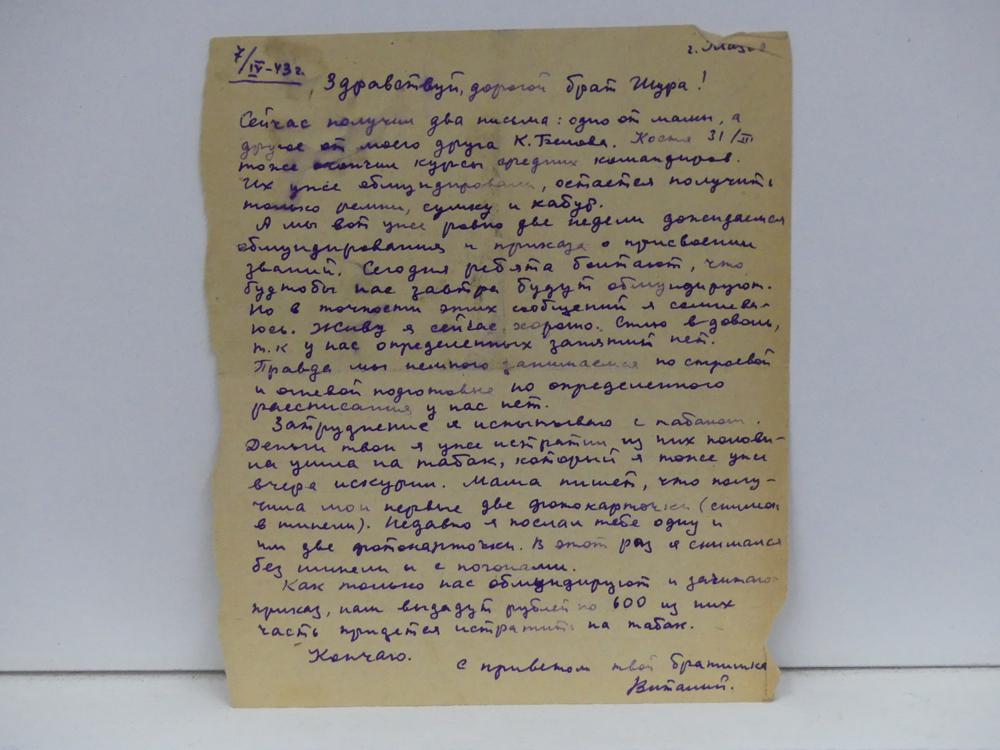 7/IV-43 г. г. Глазов
Здравствуй, дорогой брат Шура!
Сейчас получил два письма: одно от мамы, а
другое от моего друга К. Белова. Костя 31/III
тоже окончил курсы средних командиров.
Их уже обмундировали, остается получить
только ремни, сумку и кабур.
А мы вот уже ровно две недели дожидаемся
обмундирования и приказа о присвоении
званий. Сегодня ребята болтают, что
будтобы нас завтра будут обмундируют.
Но в точности этих сообщений я сомнева-
юсь. Живу я сейчас хорошо. Сплю вдоволь,
т.к у нас определенных занятий нет.
Правда мы немного занимаемся по строевой
и огневой подготовке но определенного
рассписания у нас нет.
Затруднение я испытываю с табаком.
Деньги твои я уже истратил из них полови-
на ушла на табак, который я тоже уже
вчера искурил. Мама пишет, что полу-
чила мои первые две фотокарточки (снимал
в шинели). Недавно я послал тебе одну и
им две фотокарточки. В этот раз я снимался
без шинели и с погонами.
Как только нас обмундируют и зачитают
приказ, нам выдадут рублей по 600 из них
часть придется истратить на табак.
Кончаю.
С приветом твой братишка
Виталий.